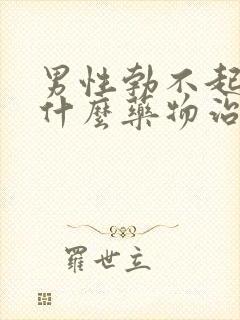 男性勃不起
什麼藥物治
羅世立